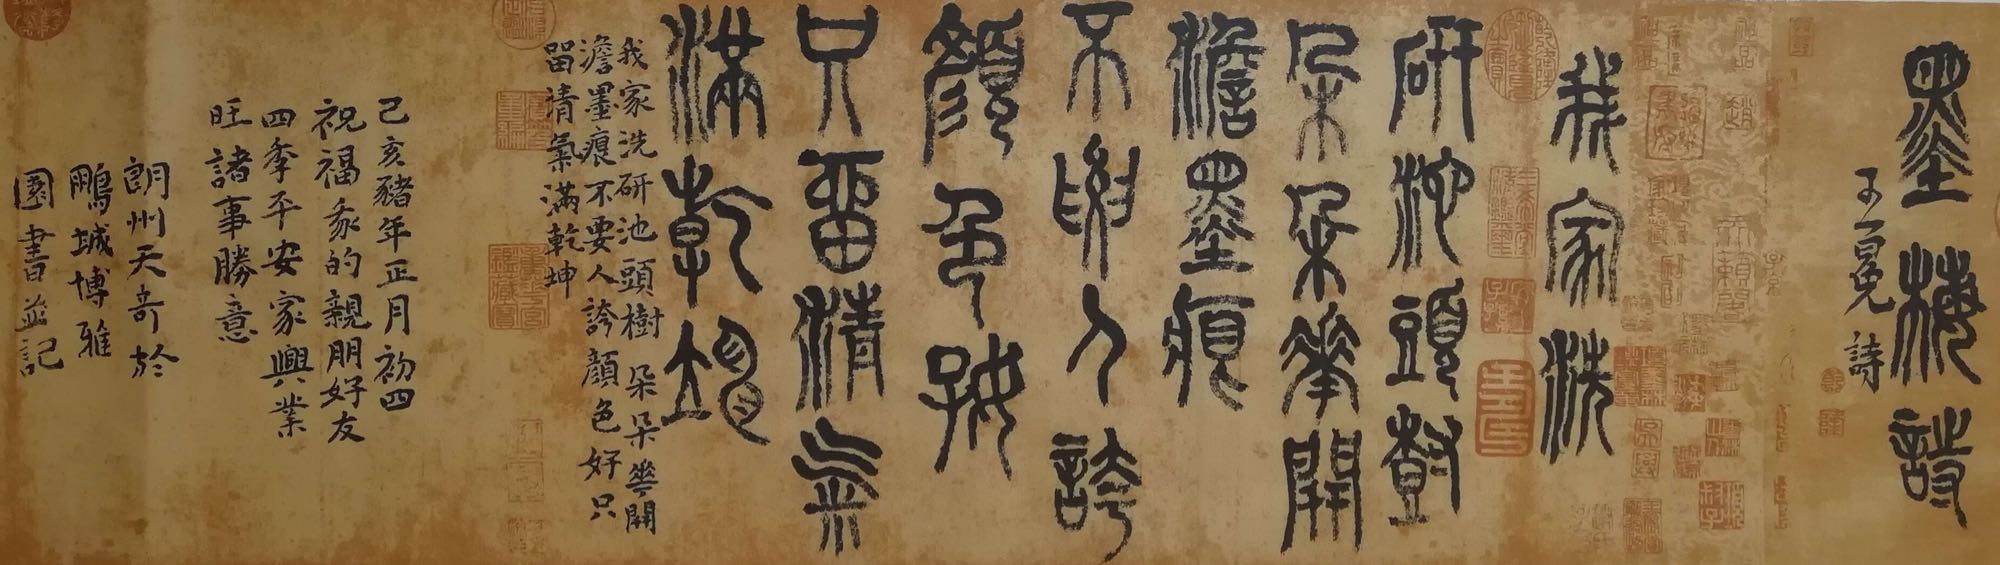 墨梅詩
王冕詩
我家洗
研池頭樹
朵朵華開
澹墨痕
不要人誇
顏色好
只留清氣
滿乾坤
我家洗研池頭樹朵朵華開
澹墨痕不要人誇顏色好只
留清氣滿乾坤
己亥豬年正月初四
祝福我的親朋好友
四季平安家興業
旺諸事勝意
朗州天奇於
鵬城博雅
園書並記